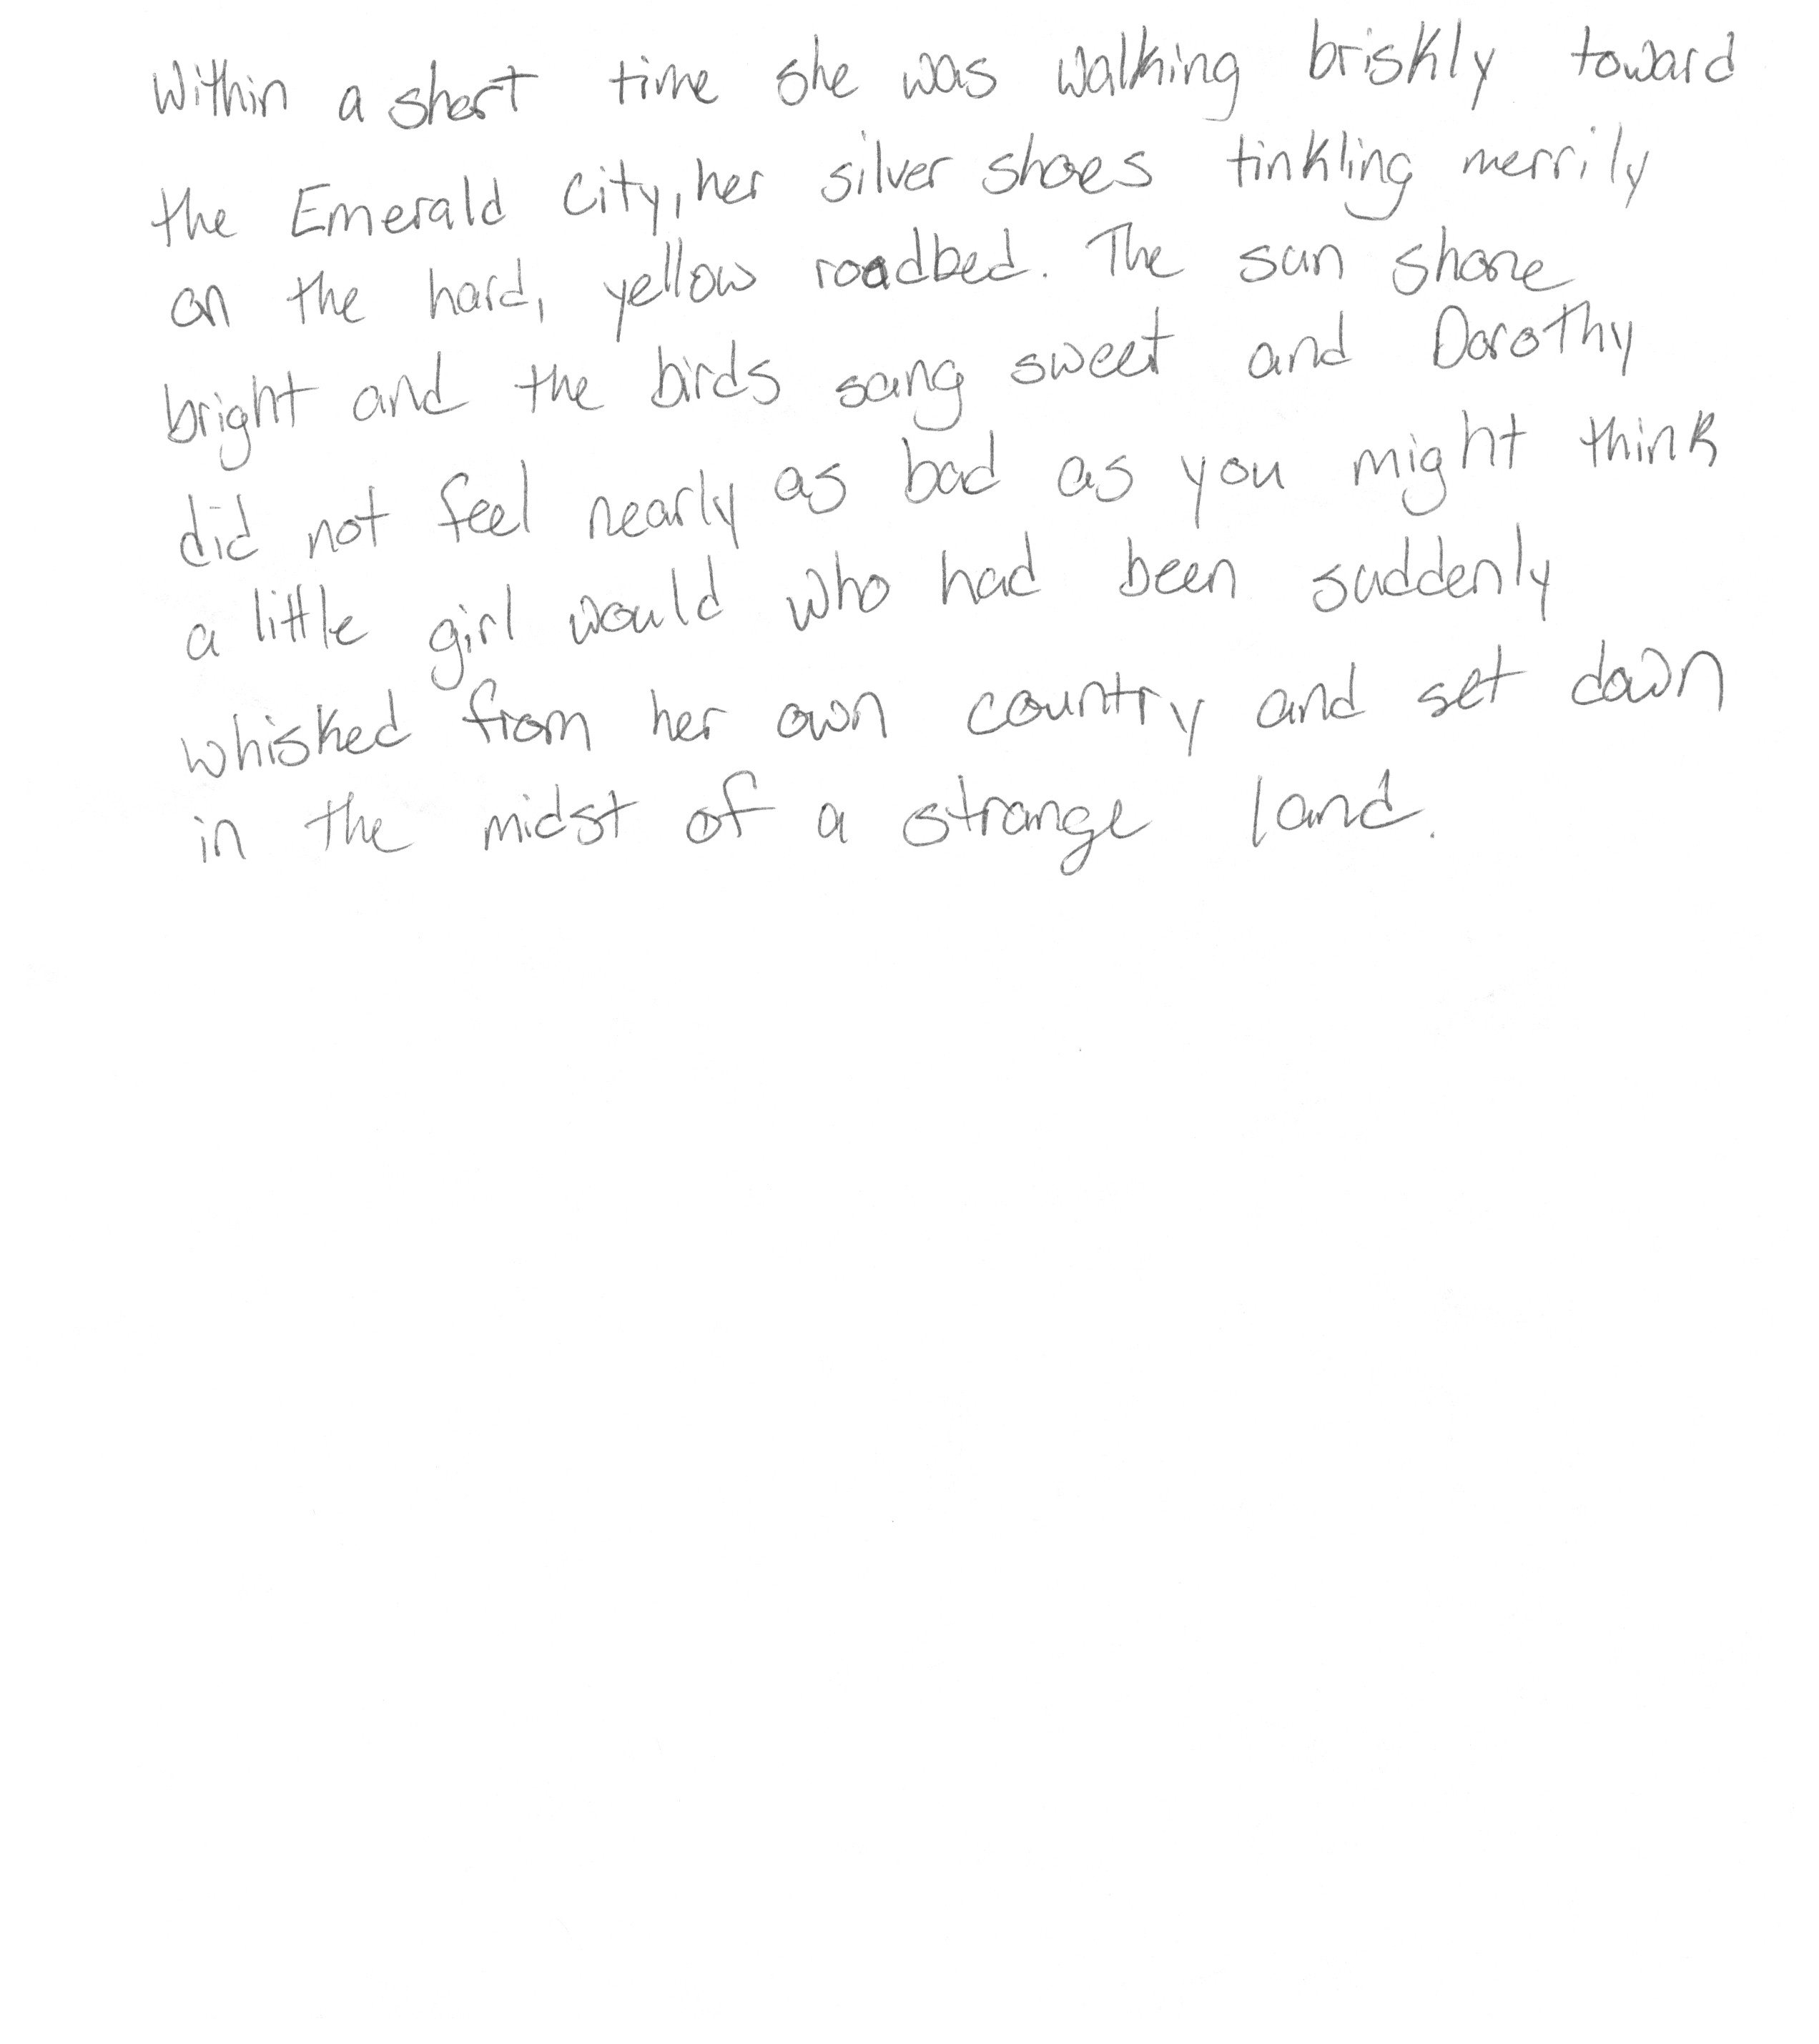 Within a short time she was walking briskly toward
the Emerald City, her silver shoes tinkling merrily
on the hard, yellow roadbed. The sun shone
bright and the birds sang sweet and Dorothy
did not feel nearly as bad as you might think
a little girl would who had been suddenly
whisked from her own country and set down
in the midst of a strange land.